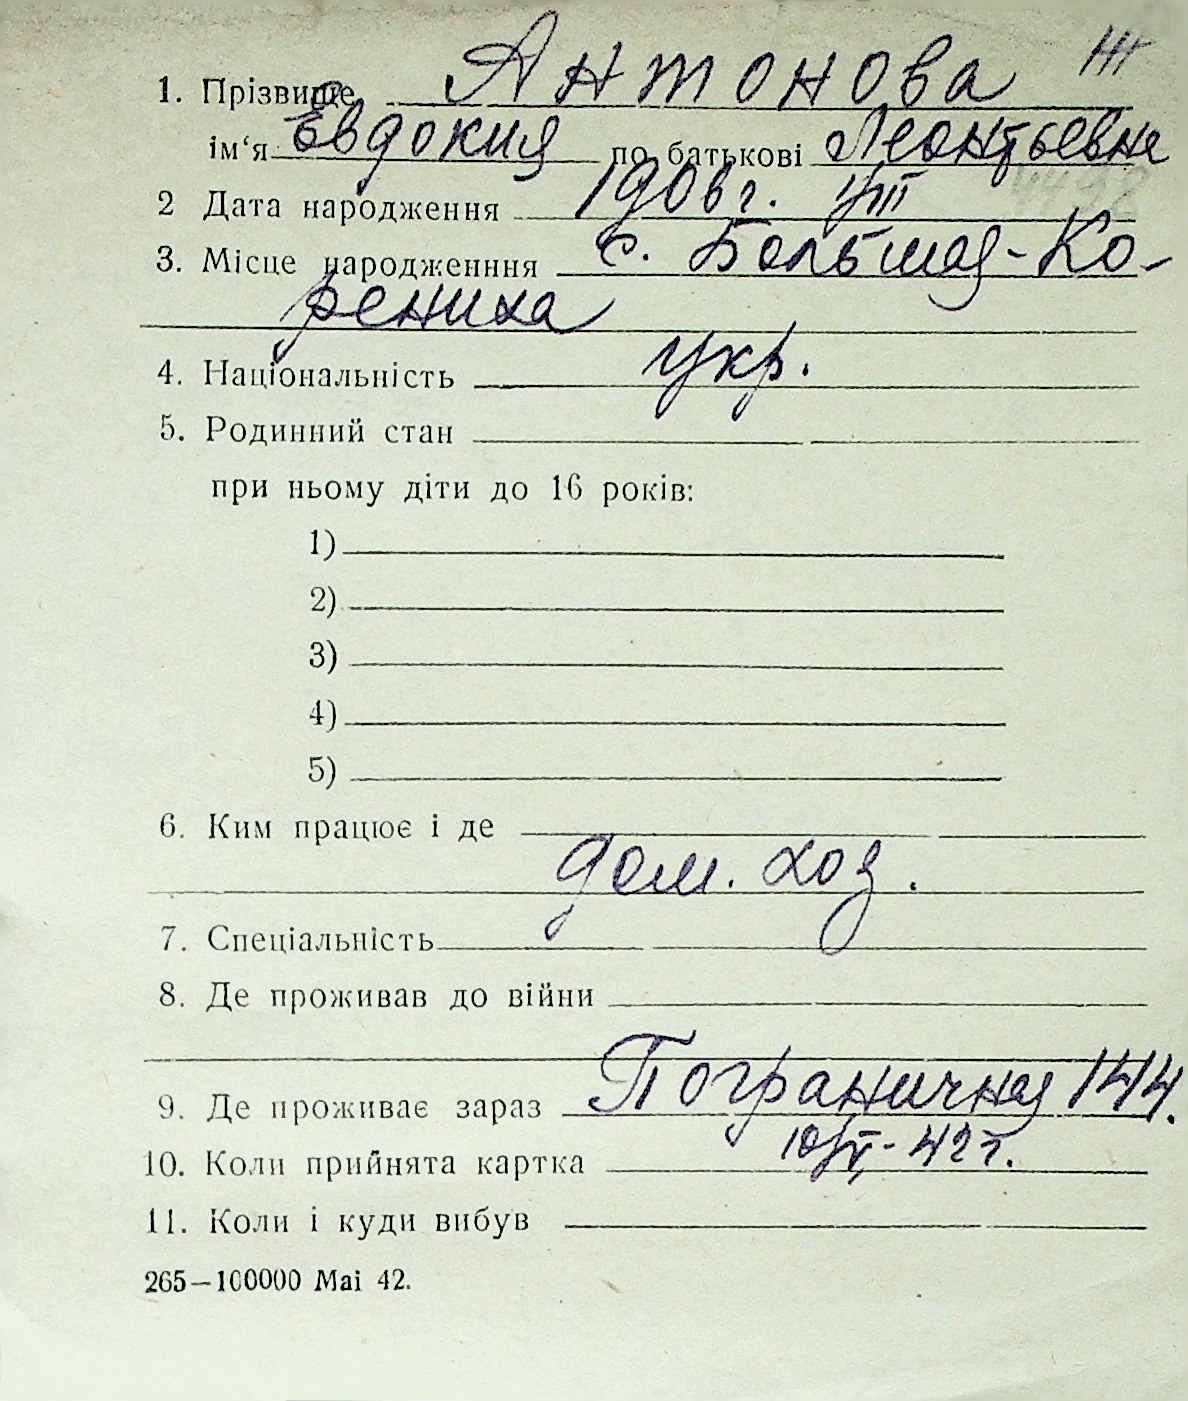 1. Прізвище Антонова
ім‘я Евдокия по батькові Леонтьевна
2 Дата народження 1906 г.
3. Місце народженння с. Большая-Ко-
рениха
4. Національність укр.
5. Родинний стан
при ньому діти до 16 років:
1)
2)
3)
4)
5)
6. Ким працює і де
дом. хоз.
7. Спеціальність
8. Де проживав до війни
9. Де проживає зараз Пограничная 144.
10. Коли прийнята картка
11. Коли і куди вибув
265—100000 Mai 42.